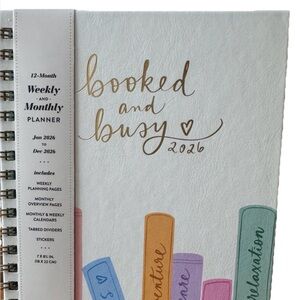 12-Month
Weekly
-AND-
Monthly
PLANNER
Jan 2026
TO
Dec 2026
includes
WEEKLY
PLANNING PAGES
MONTHLY
OVERVIEW PAGES
MONTHLY & WEEKLY
CALENDARS
TABBED DIVIDERS
STICKERS
7 X 8¾ IN.
(18 X 22 CM)
booked
and
busy ♡
2026
relaxation